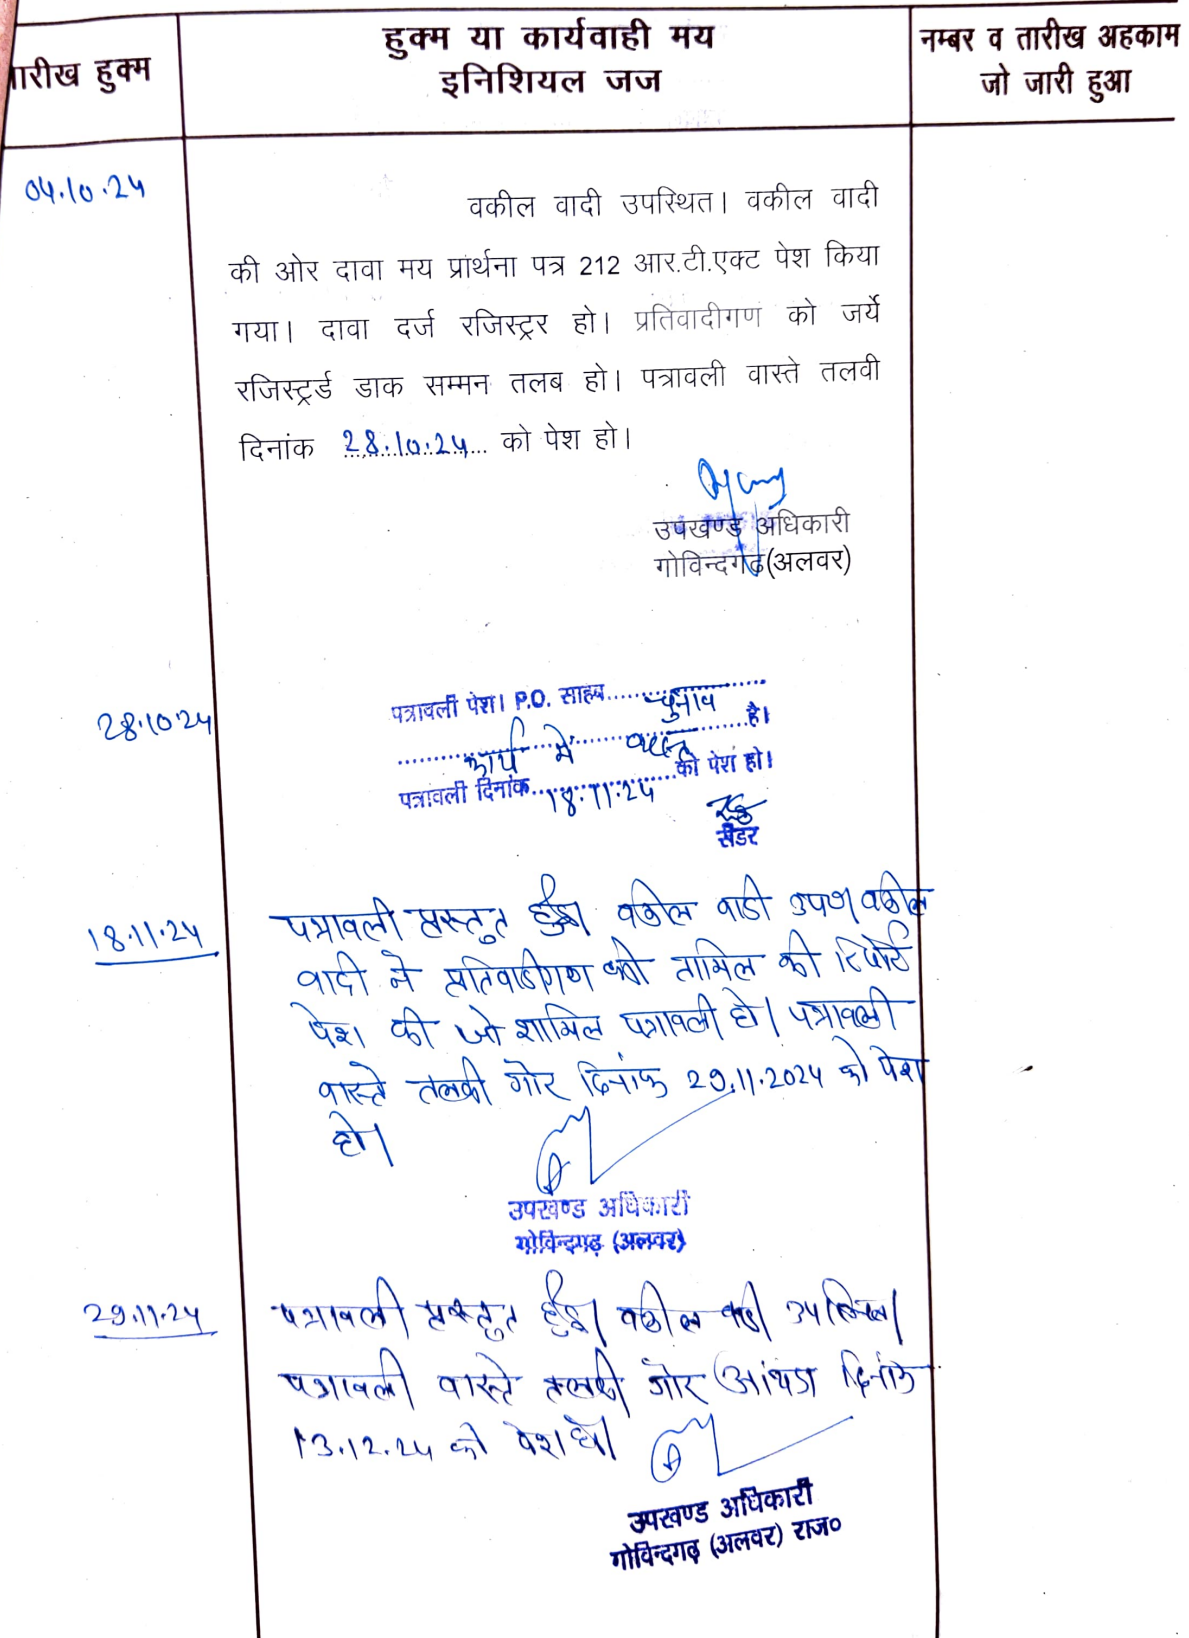 तारीख हुक्म
हुक्म या कार्यवाही मय
इनिशियल जज
नम्बर व तारीख अहकाम
जो जारी हुआ
04.10.24
वकील वादी उपस्थित। वकील वादी
की ओर दावा मय प्रार्थना पत्र 212 आर.टी.एक्ट पेश किया
गया। दावा दर्ज रजिस्ट्रर हो। प्रतिवादीगण को जर्ये
रजिस्ट्रर्ड डाक सम्मन तलब हो। पत्रावली वास्ते तलवी
दिनांक 28.10.24 को पेश हो।
उपखण्ड अधिकारी
गोविन्दगढ(अलवर)
28.10.24
पत्रावली पेश। P.O. साहब चुनाव
कार्य में व्यस्त है।
पत्रावली दिनांक 18.11.24 को पेश हो।
रीडर
18.11.24
पत्रावली प्रस्तुत हुई। वकील वादी उप०। वकील
वादी ने प्रतिवादीगण की तामिल की रिपोर्ट
पेश की जो शामिल पत्रावली हो। पत्रावली
वास्ते तलबी गोर दिनांक 29.11.2024 को पेश
हो।
उपखण्ड अधिकारी
गोविन्दगढ़ (अलवर)
29.11.24
पत्रावली प्रस्तुत हुई। वकील वादी उपस्थित।
पत्रावली वास्ते तलबी गोर दिनांक
13.12.24 को पेश हो।
उपखण्ड अधिकारी
गोविन्दगढ़ (अलवर) राज०